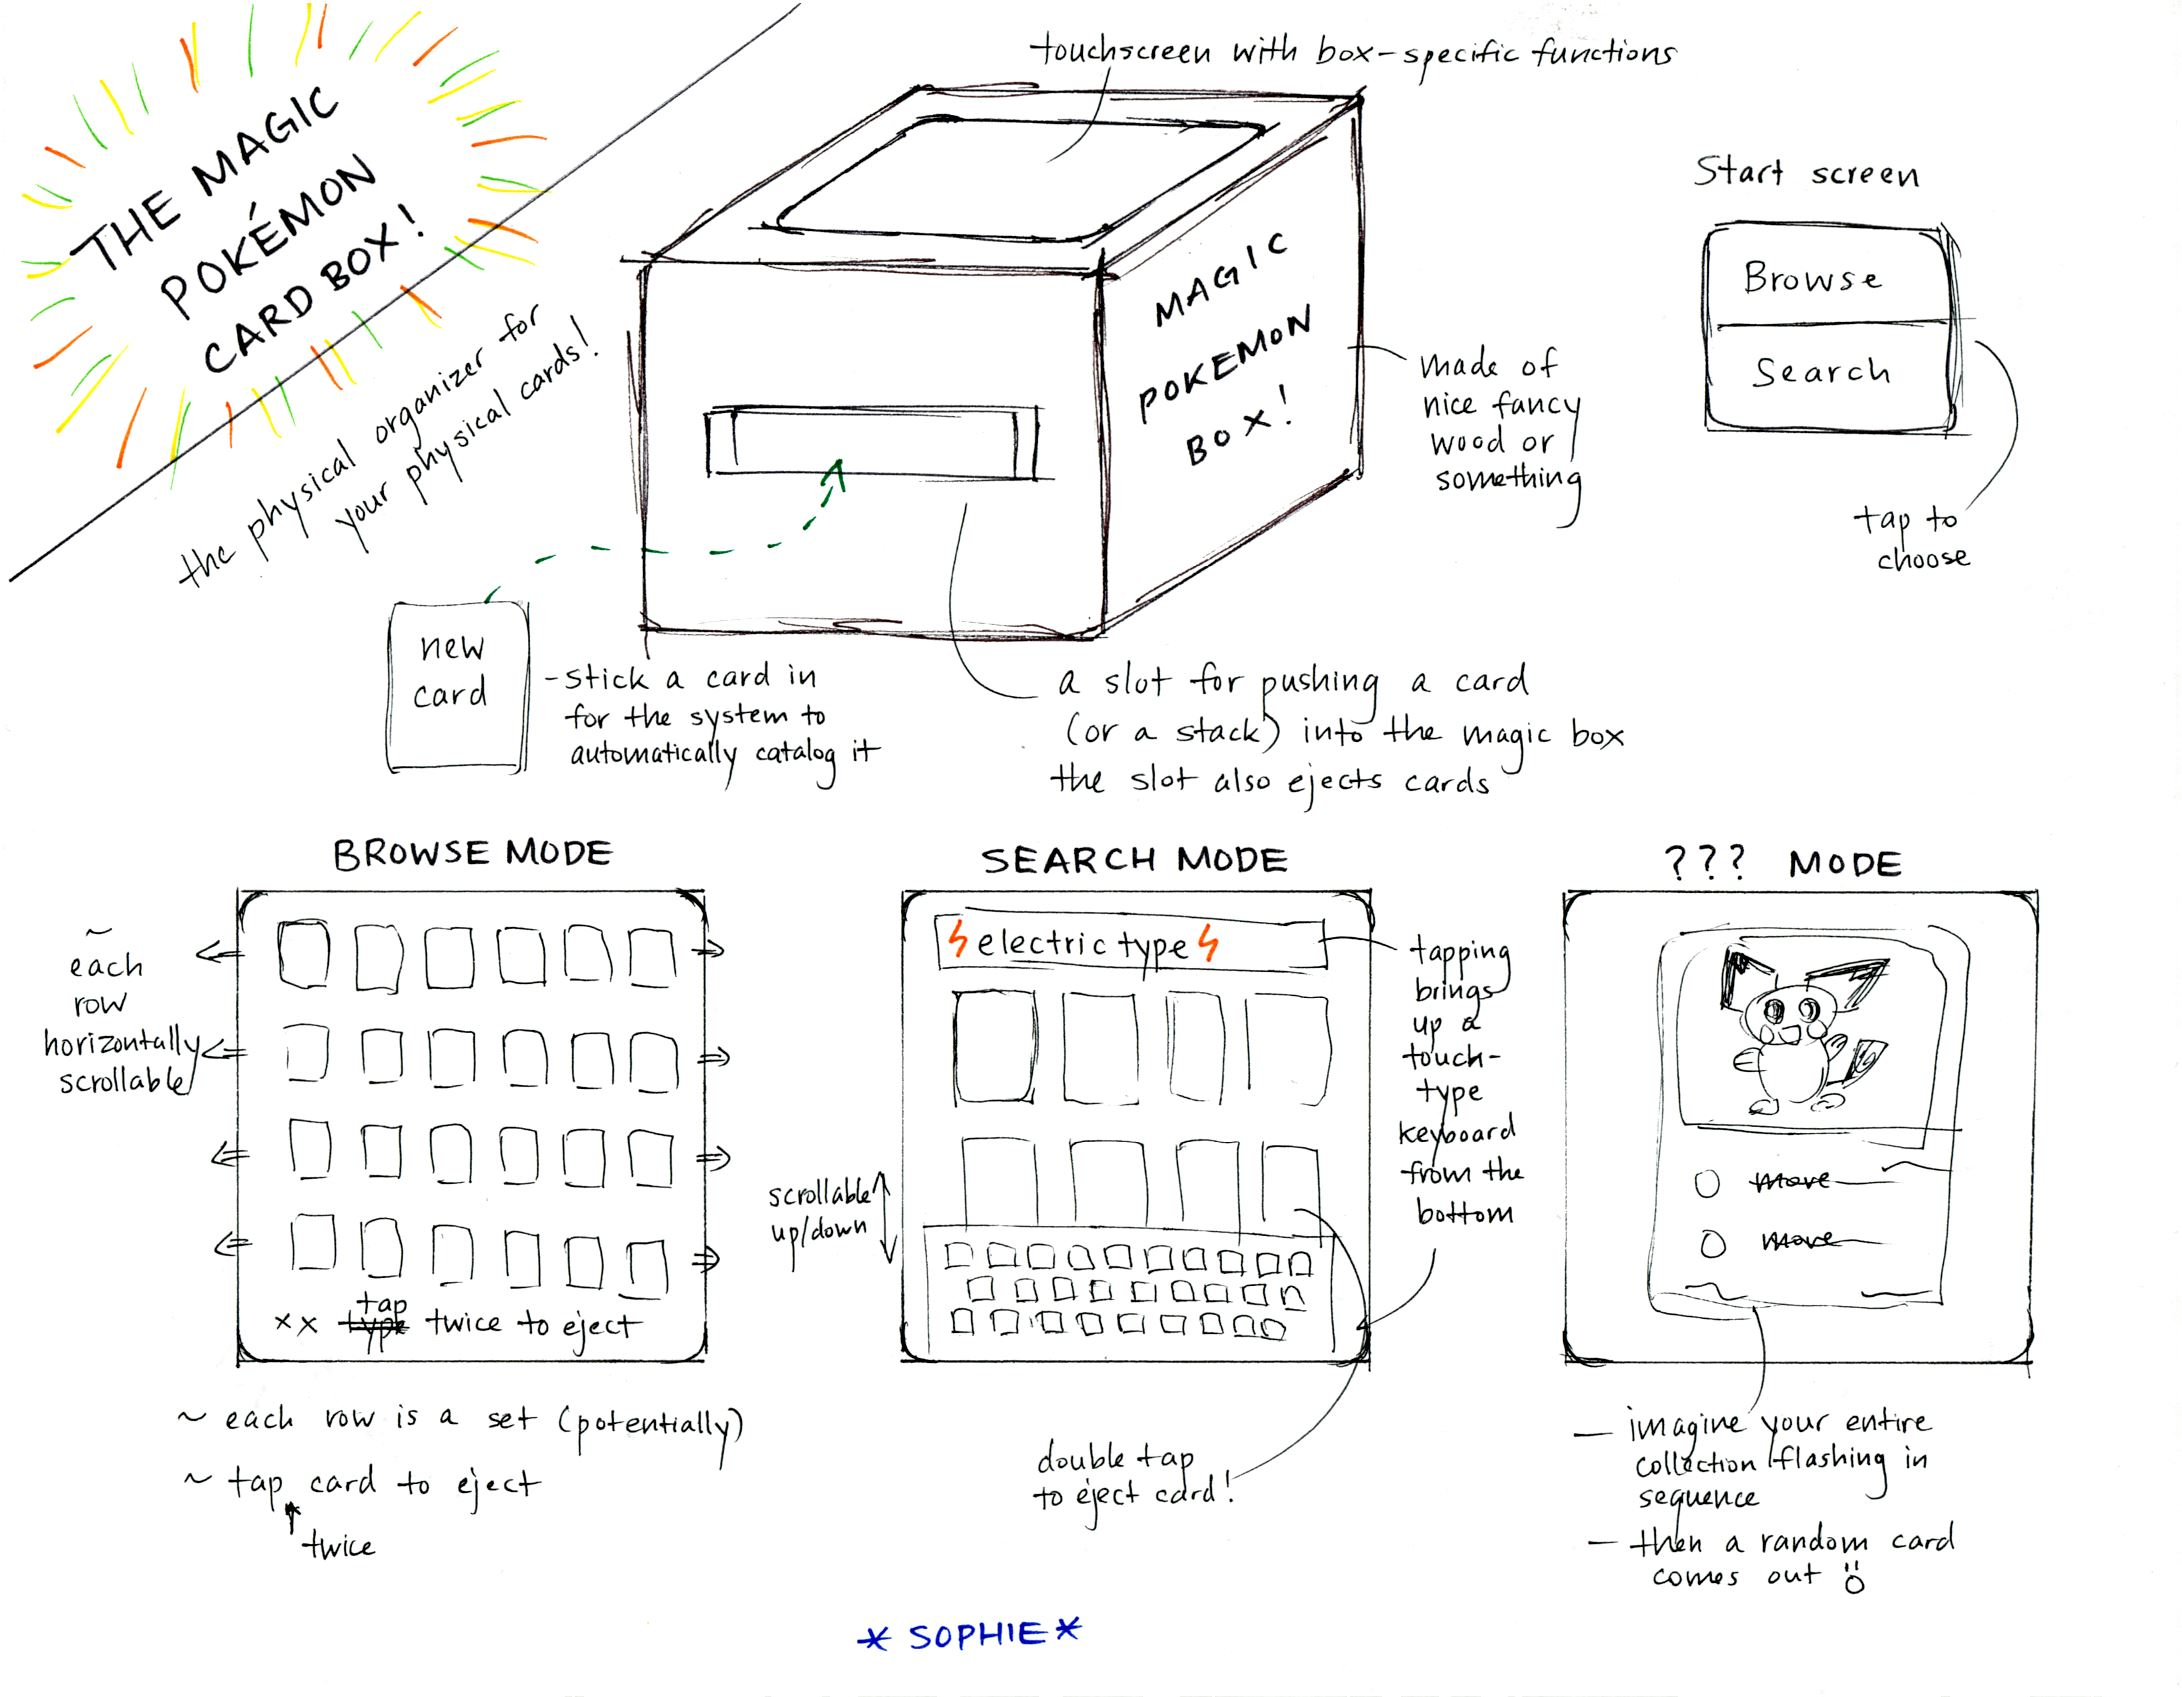 THE MAGIC
POKÉMON
CARD BOX!
the physical organizer for
your physical cards!
touchscreen with box-specific functions
MAGIC
POKEMON
BOX!
made of
nice fancy
wood or
something
Start screen
Browse
Search
tap to
choose
new
card
- stick a card in
for the system to
automatically catalog it
a slot for pushing a card
(or a stack) into the magic box
the slot also ejects cards
BROWSE MODE
~
each
row
horizontally
scrollable
tap
xx type twice to eject
~ each row is a set (potentially)
~ tap card to eject
twice
SEARCH MODE
electric type
tapping
brings
up a
touch-
type
keyboard
from the
bottom
scrollable
up/down
double tap
to eject card!
??? MODE
move
move
— imagine your entire
collection flashing in
sequence
— then a random card
comes out
* SOPHIE *